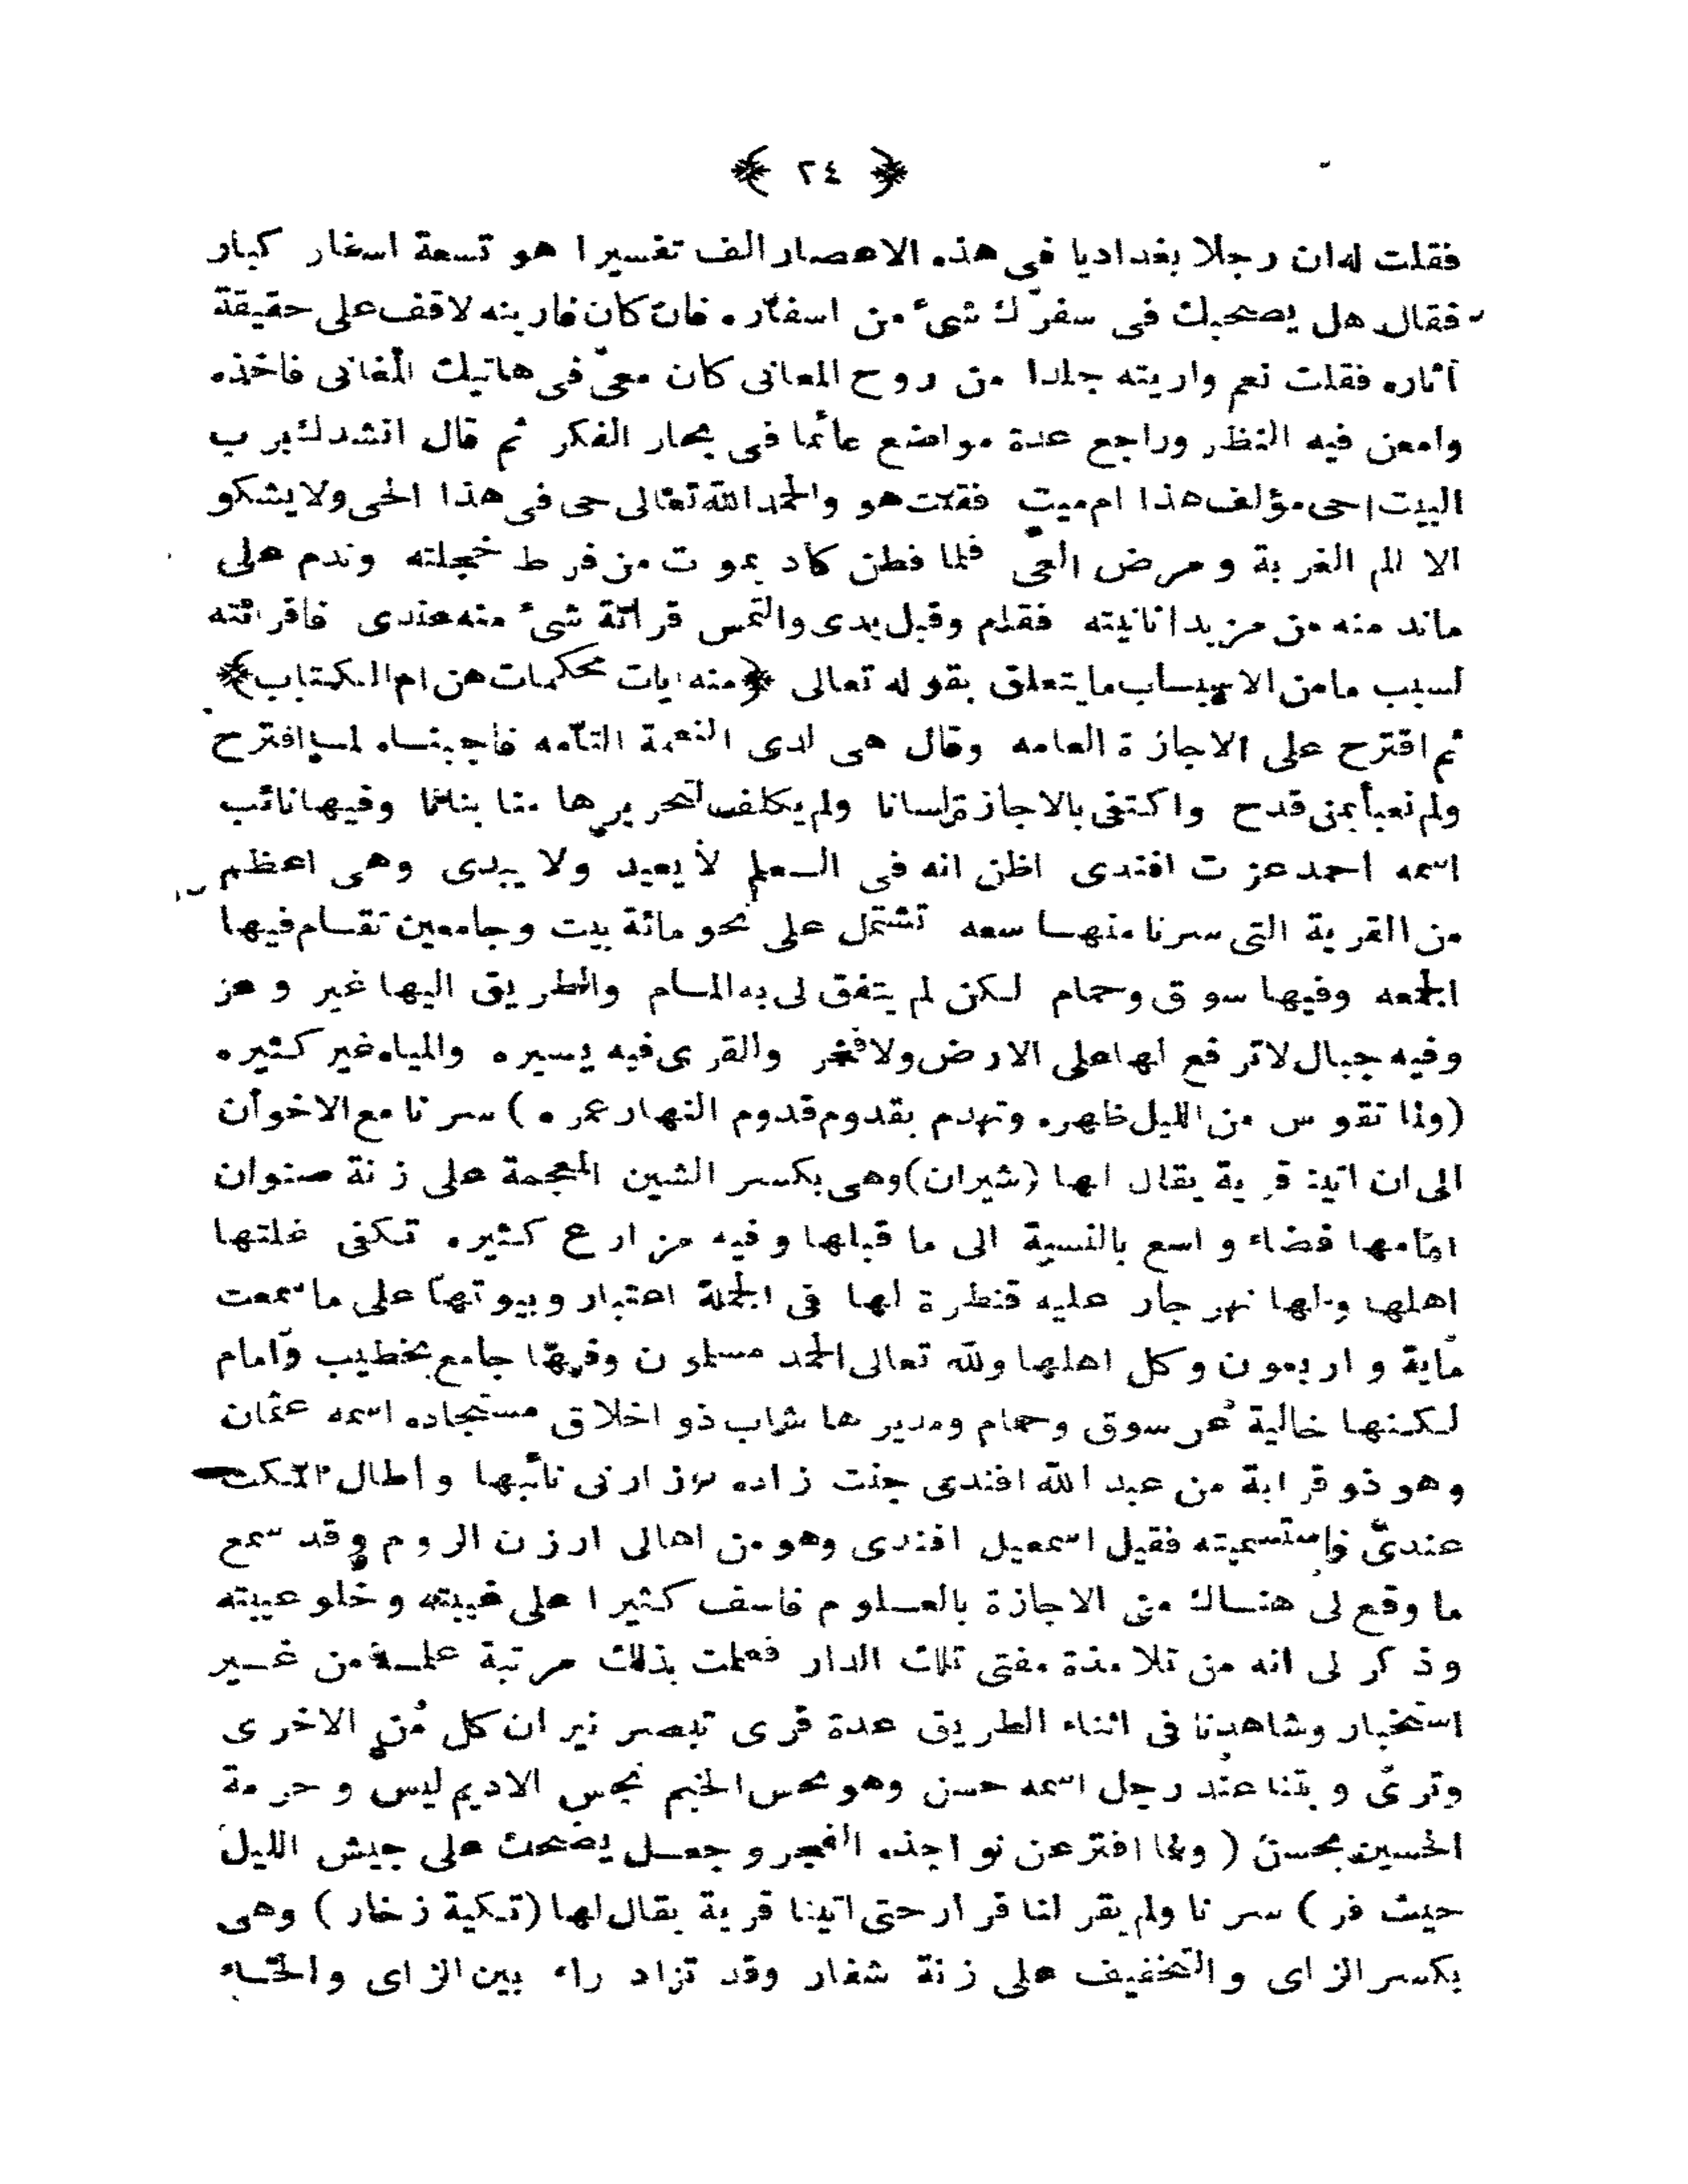 ﴿ ٢٤ ﴾
فقلت له ان رجلا بغداديا في هذه الاعصار الف تفسيرا هو تسعة اسفار كبار
فقال هل يصحبك في سفرك شئ من اسفاره فان كان فارينه لاقف على حقيقة
آثاره فقلت نعم واريته جلدا من روح المعانى كان معى في هاتيك المغانى فاخذه
وامعن فيه النظر وراجع عدة مواضع عائما فى بحار الفكر ثم قال انشدك برب
البيت احى مؤلف هذا ام ميت فقلت هو والحمد الله تعالى حى فى هذا الحى ولا يشكو
الا الم الغربة ومرض العى فلما فطن كاد يموت من فرط خجلته وندم على
ماند منه من مزيد انانيته فقام وقبل يدى والتمس قرائة شئ منه عندى فاقرائته
لسبب ما من الاسباب ما يتعلق بقوله تعالى ﴿منه ايات محكمات هن ام الكتاب﴾
ثم اقترح على الاجازة العامه وقال هى لدى النعمة التامه فاجبناه لما اقترح
ولم نعبأ بمن قدح واكتفى بالاجازة لسانا ولم يكلف لتحريرها منا بنانا وفيها نائب
اسمه احمد عزت افندى اظن انه فى العلم لا يعيد ولا يبدى وهى اعظم
من القرية التى سرنا منها سعه تشتمل على نحو مائة بيت وجامعين تقام فيها
الجمعه وفيها سوق وحمام لكن لم يتفق لى به المام والطريق اليها غير وعر
وفيه جبال لاترفع لها على الارض ولا فخر والقرى فيه يسيره والمياه غير كثيره
(ولما تقوس من الليل ظهره وتهدم بقدوم قدوم النهار عمره) سرنا مع الاخوان
الى ان اتينا قرية يقال لها (شيران) وهى بكسر الشين المعجمة على زنة صنوان
امامها فضاء واسع بالنسبة الى ما قبلها وفيه مزارع كثيره تكفى غلتها
اهلها ولها نهر جار عليه قنطرة لها فى الجملة اعتبار وبيوتها على ما سمعت
ماية واربعون وكل اهلها ولله تعالى الحمد مسلمون وفيها جامع بخطيب وامام
لكنها خالية عن سوق وحمام ومديرها شاب ذو اخلاق مستجاده اسمه عثمان
وهو ذو قرابة من عبد الله افندى جنت زاده وزارنى نائبها واطال المكث
عندى واستسميته فقيل اسمعيل افندى وهو من اهالى ارزن الروم وقد سمع
ما وقع لى هناك من الاجازة بالعلوم فاسف كثيرا على غيبته وخلو عيبته
وذكر لى انه من تلامذة مفتى تلك الدار فعلمت بذلك مرتبة علمه من غير
استخبار وشاهدنا فى اثناء الطريق عدة قرى تبصر نيران كل من الاخرى
وترى وبتنا عند رجل اسمه حسن وهو نحس الخيم نجس الاديم ليس وحرمة
الحسين بحسن (ولما افتر عن نواجذه الفجر وجعل يضحك على جيش الليل
حيث فر) سرنا ولم يقر لنا قرار حتى اتينا قرية يقال لها (تكية زخار) وهى
بكسر الزاى والتخفيف على زنة شغار وقد تزاد راء بين الزاى والخاء